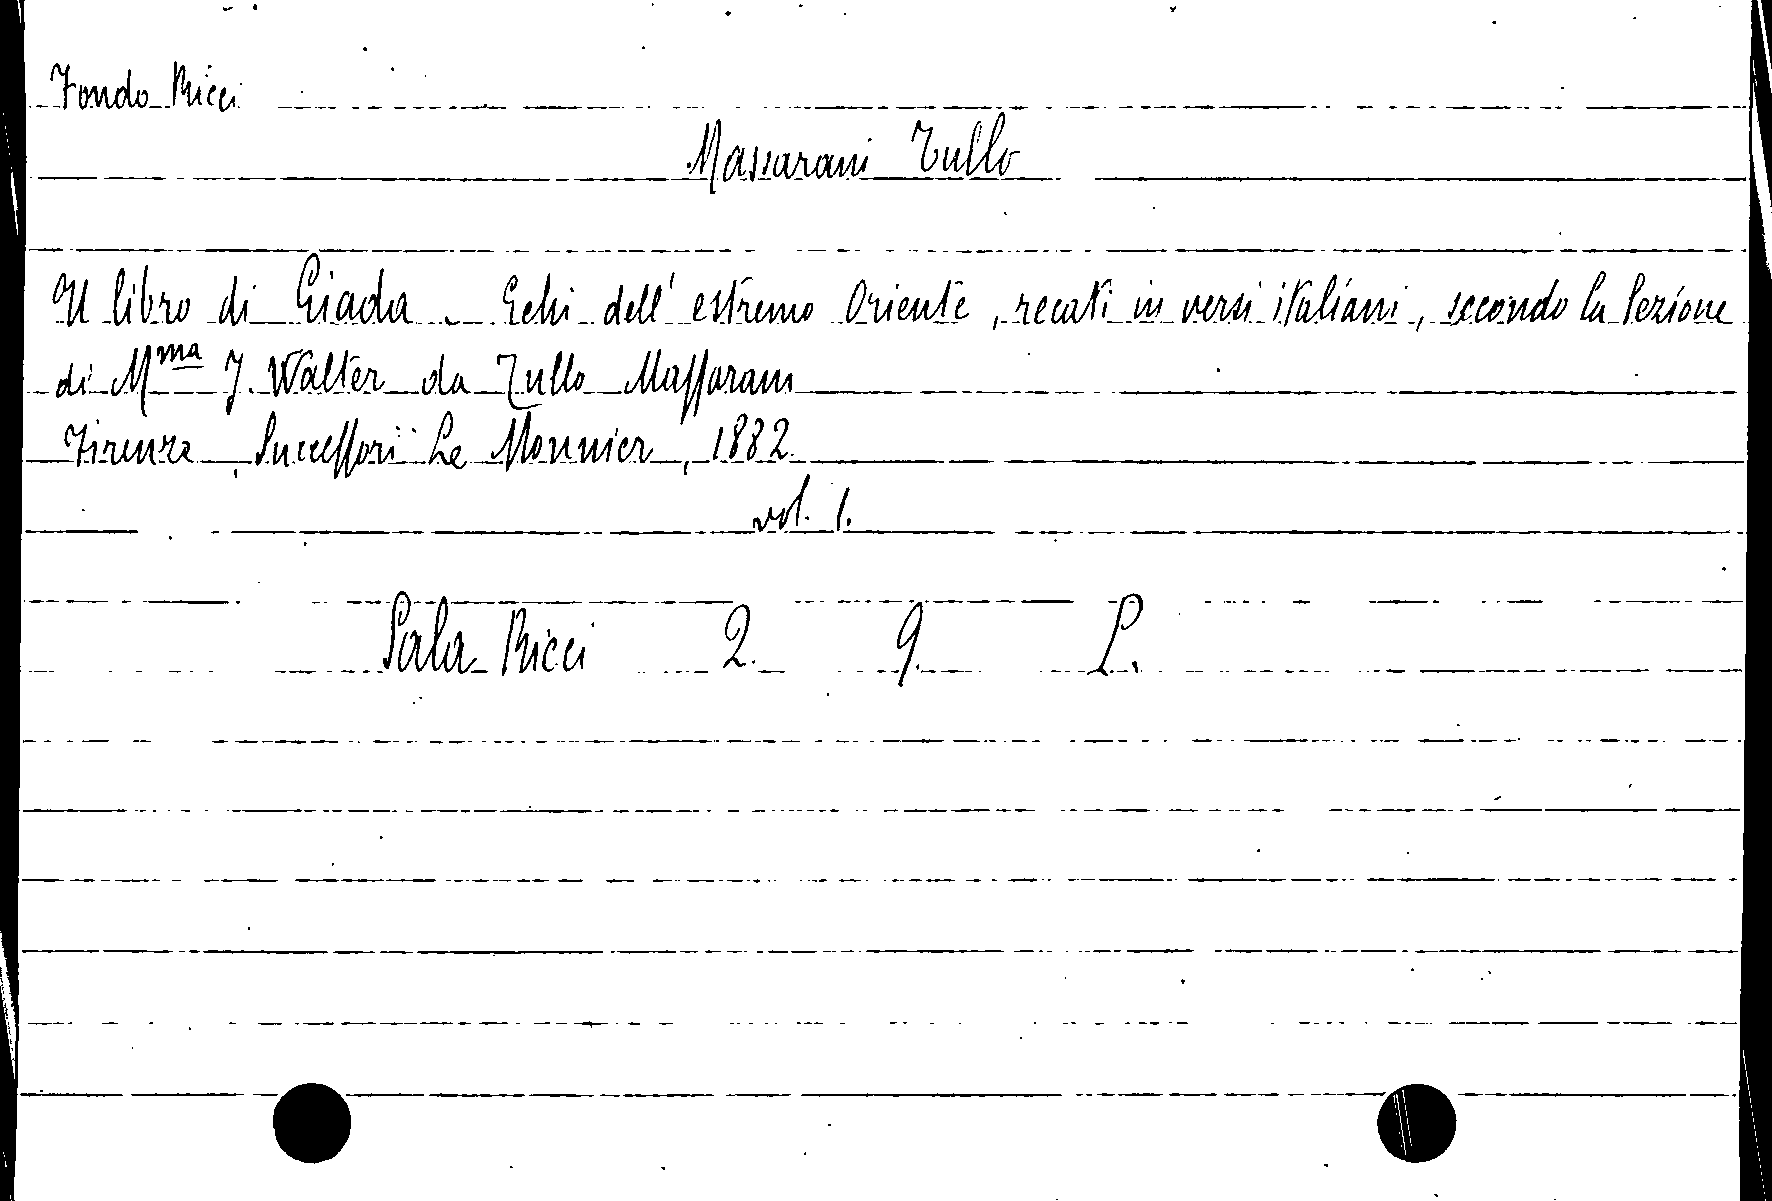 Fondo Ricci
Massarani Tullo
Il libro di Giada. Echi dell'estremo Oriente, recati in versi italiani, secondo la lezione
di Mma J. Walter da Tullo Massarani
Firenze, Successori Le Monnier, 1882
vol. 1.
Sala Ricci 2. 9. P.